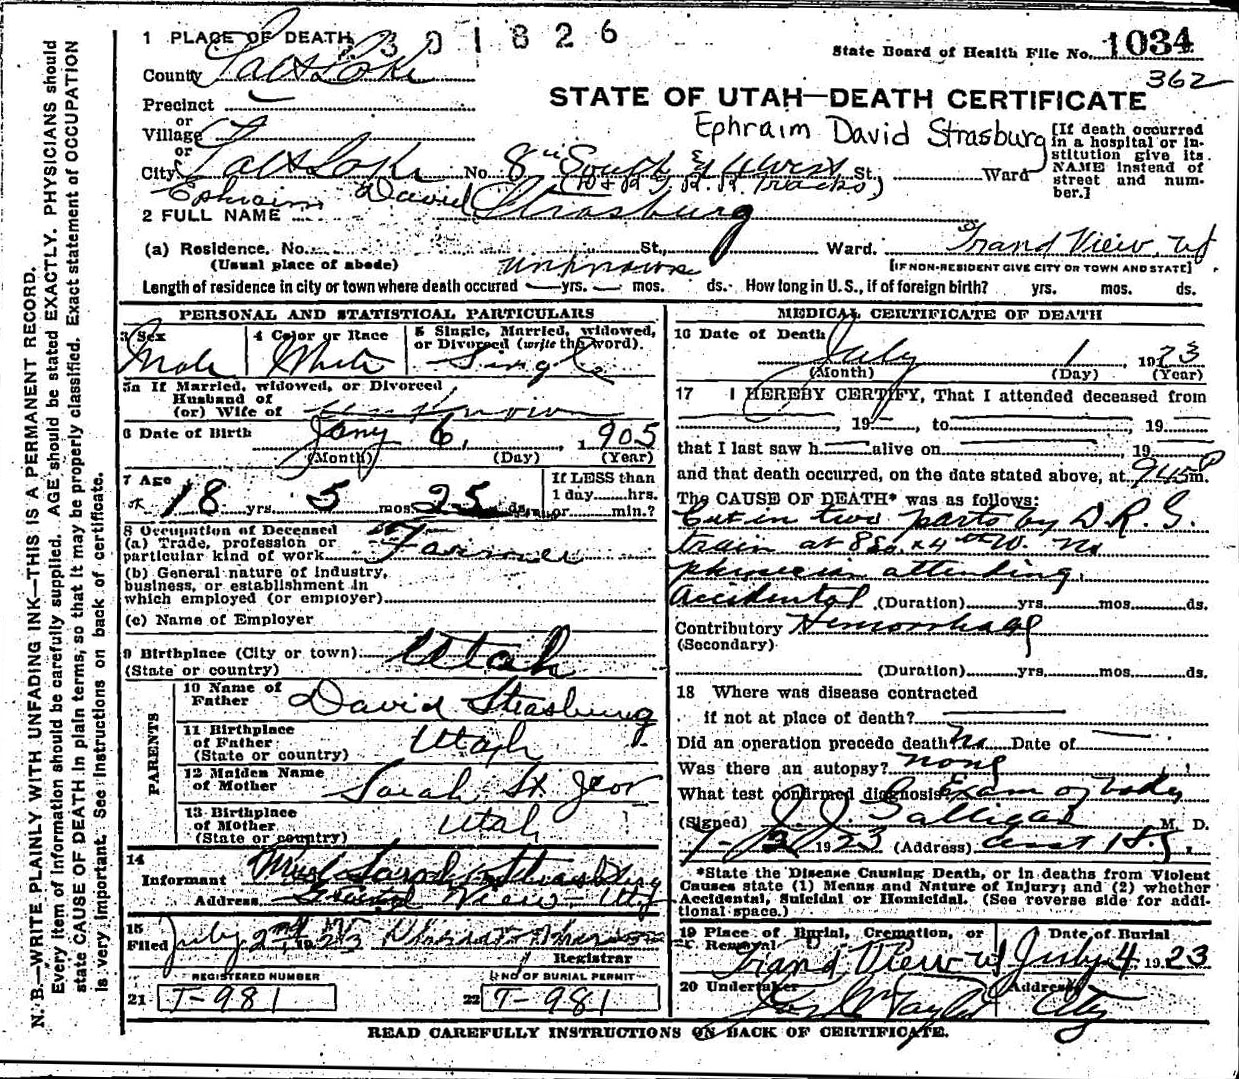 N. B.—WRITE PLAINLY WITH UNFADING INK—THIS IS A PERMANENT RECORD.
Every item of information should be carefully supplied. AGE should be stated EXACTLY. PHYSICIANS should
state CAUSE OF DEATH in plain terms, so that it may be properly classified. Exact statement of OCCUPATION
is very important. See instructions on back of certificate.
1 PLACE OF DEATH 2301826
State Board of Health File No. 1034
362
County Salt Lake
STATE OF UTAH—DEATH CERTIFICATE
Precinct
or
Village
or
City Salt Lake No. 8th South & 4 West St. Ward
(D & R G R. R. tracks)
Ephraim David Strasburg
[If death occurred in a hospital or institution give its NAME instead of street and number.]
Ephraim David
2 FULL NAME Strasburg
(a) Residence. No. St., Ward. Grand View, Ut
(Usual place of abode) unknown [IF NON-RESIDENT GIVE CITY OR TOWN AND STATE]
Length of residence in city or town where death occurred yrs. mos. ds. How long in U. S., if of foreign birth? yrs. mos. ds.
PERSONAL AND STATISTICAL PARTICULARS
3 Sex Male
4 Color or Race White
5 Single, Married, widowed, or Divorced (write the word). Single
5a If Married, widowed, or Divorced
Husband of
(or) Wife of unknown
6 Date of Birth Jany 6, 1905
(Month) (Day) (Year)
7 Age 18 yrs. 5 mos. 25 ds.
If LESS than
1 day......hrs.
or......min.?
8 Occupation of Deceased
(a) Trade, profession or
particular kind of work Farmer
(b) General nature of industry,
business, or establishment in
which employed (or employer)
(c) Name of Employer
9 Birthplace (City or town) Utah
(State or country)
PARENTS
10 Name of Father David Strasburg
11 Birthplace of Father Utah
(State or country)
12 Maiden Name of Mother Sarah St Jeor
13 Birthplace of Mother Utah
(State or country)
14
Informant Mrs Sarah Strasburg
Address Grand View Ut
15
Filed July 2nd 1923
Registrar
REGISTERED NUMBER
21 T-981
NO OF BURIAL PERMIT
22 T-981
MEDICAL CERTIFICATE OF DEATH
16 Date of Death July 1 1923
(Month) (Day) (Year)
17 I HEREBY CERTIFY, That I attended deceased from
, 19 , to , 19
that I last saw h alive on 19
and that death occurred, on the date stated above, at 945 P m.
The CAUSE OF DEATH* was as follows:
Cut in two parts by D.R.G.
train at 8 So. & 4th W. No
physician attending.
Accidental (Duration) yrs. mos. ds.
Contributory Hemorrhage
(Secondary)
(Duration) yrs. mos. ds.
18 Where was disease contracted
if not at place of death?
Did an operation precede death? No Date of
Was there an autopsy? none
What test confirmed diagnosis? Exam of body
(Signed) J J Galligan M. D.
7-2 1923 (Address)
*State the Disease Causing Death, or in deaths from Violent
Causes state (1) Means and Nature of Injury; and (2) whether
Accidental, Suicidal or Homicidal. (See reverse side for additional space.)
19 Place of Burial, Cremation, or Removal Grand View Ut
Date of Burial July 4, 1923
20 Undertaker Jos Wm Taylor
Address City
READ CAREFULLY INSTRUCTIONS ON BACK OF CERTIFICATE.